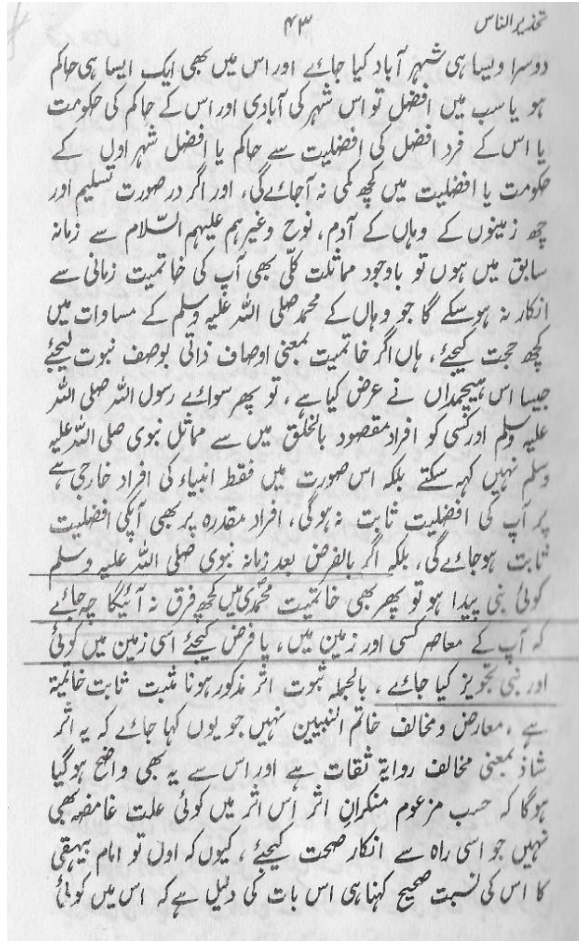 تحذیر الناس ۴۳
دوسرا ویسا ہی شہر آباد کیا جائے اور اس میں بھی ایک ایسا ہی حاکم
ہو یا سب میں افضل تو اس شہر کی آبادی اور اس کے حاکم کی حکومت
یا اس کے فرد افضل کی افضلیت سے حاکم یا افضل شہر اول کے
حکومت یا افضلیت میں کچھ کمی نہ آجائے گی، اور اگر در صورت تسلیم اور
چھ زمینوں کے وہاں کے آدم، نوح وغیرہم علیہم السّلام سے زمانہ
سابق میں ہوں تو باوجود مماثلت کلّی بھی آپ کی خاتمیت زمانی سے
انکار نہ ہو سکے گا جو وہاں کے محمد صلی اللہ علیہ وسلم کے مساوات میں
کچھ حجت کیجئے، ہاں اگر خاتمیت بمعنی اوصاف ذاتی بوصف نبوت لیجئے
جیسا اس ہیچمداں نے عرض کیا ہے، تو پھر سوائے رسول اللہ صلی اللہ
علیہ وسلم اور کسی کو افراد مقصود بالخلق میں سے مماثل نبوی صلی اللہ علیہ
وسلم نہیں کہہ سکتے بلکہ اس صورت میں فقط انبیاء کی افراد خارجی ہے
پر آپ کی افضلیت ثابت نہ ہوگی، افراد مقدرہ پر بھی آپکی افضلیت
ثابت ہو جائے گی، بلکہ اگر بالفرض بعد زمانہ نبوی صلی اللہ علیہ وسلم
کوئی نبی پیدا ہو تو پھر بھی خاتمیت محمدی میں کچھ فرق نہ آئیگا چہ جائے
کہ آپ کے معاصر کسی اور زمین میں، یا فرض کیجئے اسی زمین میں کوئی
اور نبی تجویز کیا جائے، بالجملہ ثبوت اثر مذکور ہونا مثبت ثابت خاتمیۃ
ہے، معارض ومخالف خاتم النبیین نہیں جو یوں کہا جائے کہ یہ اثر
شاذ بمعنی مخالف روایۃ ثقات ہے اور اس سے یہ بھی واضح ہوگیا
ہوگا کہ حسب مزعوم منکران اثر اس اثر میں کوئی علت غامضہ بھی
نہیں جو اسی راہ سے انکار صحت کیجئے، کیوں کہ اول تو امام بیہقی
کا اس کی نسبت صحیح کہنا ہی اس بات کی دلیل ہے کہ اس میں کوئی